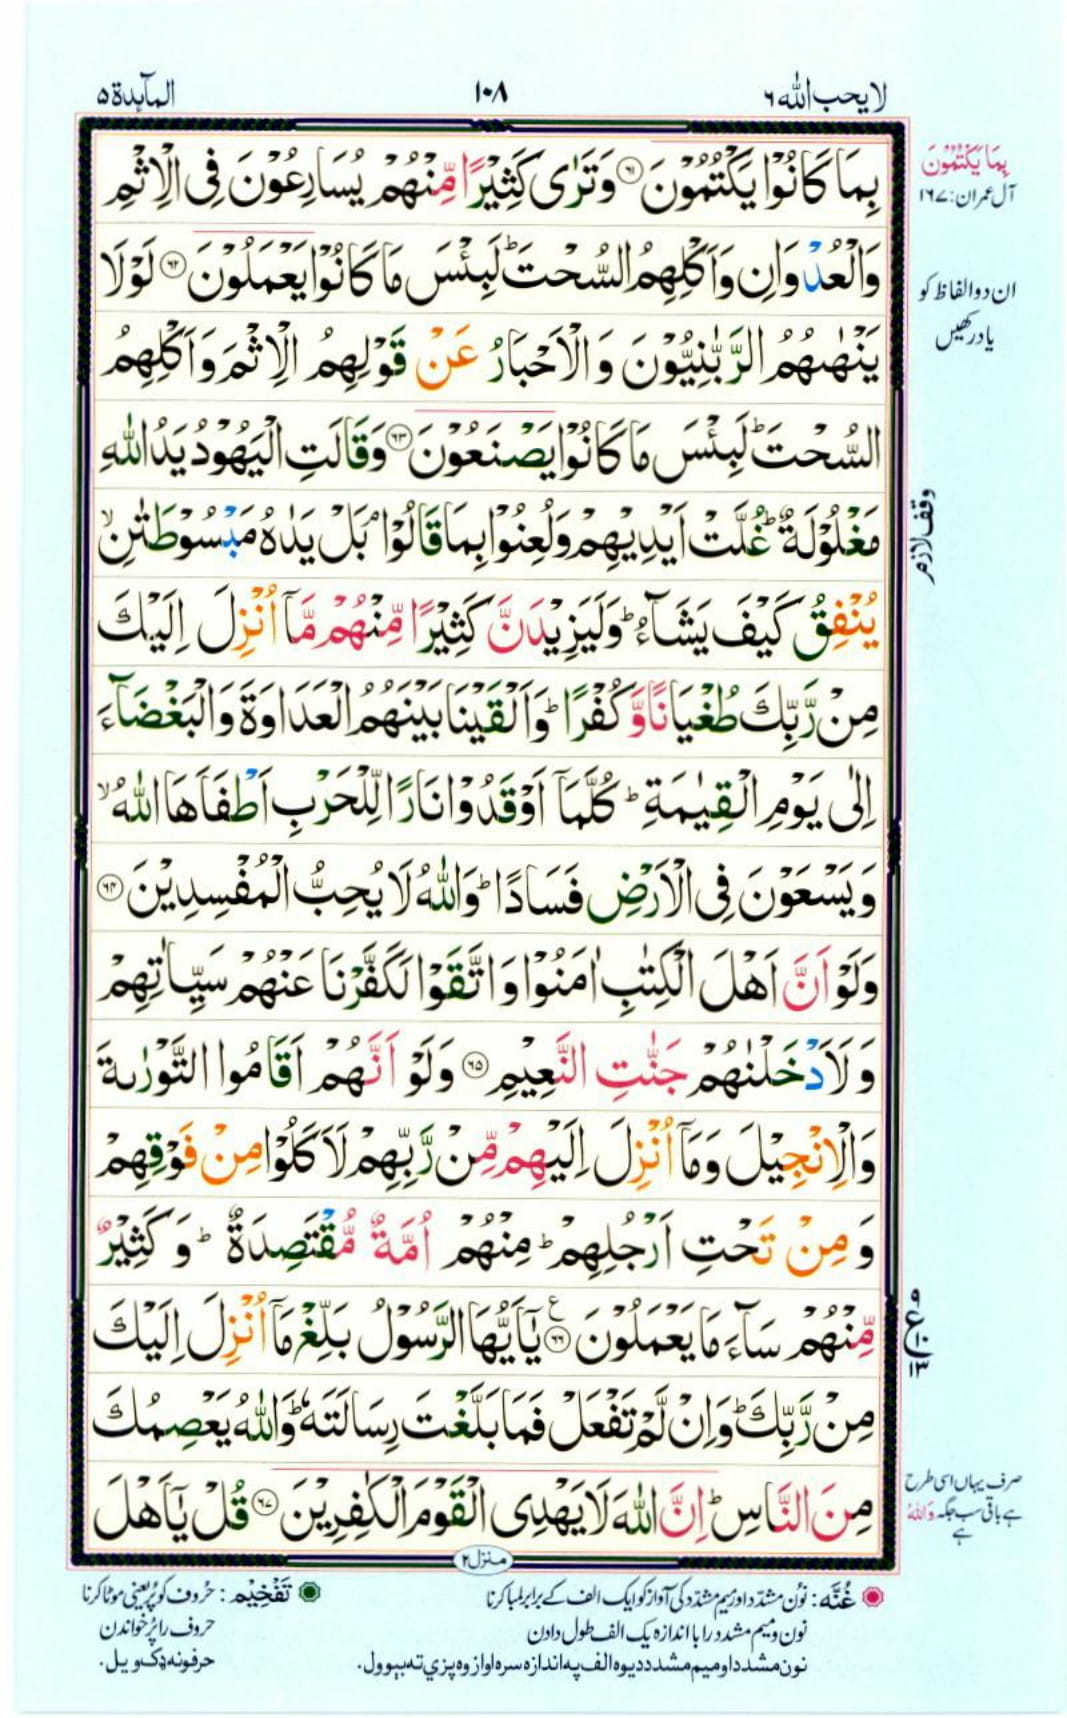 لا يحب الله ٦
١٠٨
المآىِٕدة ٥
بِمَا كَانُوْا يَكْتُمُوْنَ ﴿٦١﴾ وَتَرٰى كَثِيْرًا مِّنْهُمْ يُسَارِعُوْنَ فِى الْاِثْمِ
وَالْعُدْوَانِ وَاَكْلِهِمُ السُّحْتَ ؕ لَبِئْسَ مَا كَانُوْا يَعْمَلُوْنَ ﴿٦٢﴾ لَوْلَا
يَنْهٰىهُمُ الرَّبّٰنِيُّوْنَ وَالْاَحْبَارُ عَنْ قَوْلِهِمُ الْاِثْمَ وَاَكْلِهِمُ
السُّحْتَ ؕ لَبِئْسَ مَا كَانُوْا يَصْنَعُوْنَ ﴿٦٣﴾ وَقَالَتِ الْيَهُوْدُ يَدُ اللّٰهِ
مَغْلُوْلَةٌ ؕ غُلَّتْ اَيْدِيْهِمْ وَلُعِنُوْا بِمَا قَالُوْا ۘ بَلْ يَدٰهُ مَبْسُوْطَتٰنِ ۙ
يُنْفِقُ كَيْفَ يَشَآءُ ؕ وَلَيَزِيْدَنَّ كَثِيْرًا مِّنْهُمْ مَّآ اُنْزِلَ اِلَيْكَ
مِنْ رَّبِّكَ طُغْيَانًا وَّكُفْرًا ؕ وَاَلْقَيْنَا بَيْنَهُمُ الْعَدَاوَةَ وَالْبَغْضَآءَ
اِلٰى يَوْمِ الْقِيٰمَةِ ؕ كُلَّمَآ اَوْقَدُوْا نَارًا لِّلْحَرْبِ اَطْفَاَهَا اللّٰهُ ۙ
وَيَسْعَوْنَ فِى الْاَرْضِ فَسَادًا ؕ وَاللّٰهُ لَا يُحِبُّ الْمُفْسِدِيْنَ ﴿٦٤﴾
وَلَوْ اَنَّ اَهْلَ الْكِتٰبِ اٰمَنُوْا وَاتَّقَوْا لَكَفَّرْنَا عَنْهُمْ سَيِّاٰتِهِمْ
وَلَاَدْخَلْنٰهُمْ جَنّٰتِ النَّعِيْمِ ﴿٦٥﴾ وَلَوْ اَنَّهُمْ اَقَامُوا التَّوْرٰىةَ
وَالْاِنْجِيْلَ وَمَآ اُنْزِلَ اِلَيْهِمْ مِّنْ رَّبِّهِمْ لَاَكَلُوْا مِنْ فَوْقِهِمْ
وَمِنْ تَحْتِ اَرْجُلِهِمْ ؕ مِنْهُمْ اُمَّةٌ مُّقْتَصِدَةٌ ؕ وَكَثِيْرٌ
مِّنْهُمْ سَآءَ مَا يَعْمَلُوْنَ ﴿٦٦﴾ ع يٰٓاَيُّهَا الرَّسُوْلُ بَلِّغْ مَآ اُنْزِلَ اِلَيْكَ
مِنْ رَّبِّكَ ؕ وَاِنْ لَّمْ تَفْعَلْ فَمَا بَلَّغْتَ رِسَالَتَهٗ ؕ وَاللّٰهُ يَعْصِمُكَ
مِنَ النَّاسِ ؕ اِنَّ اللّٰهَ لَا يَهْدِى الْقَوْمَ الْكٰفِرِيْنَ ﴿٦٧﴾ قُلْ يٰٓاَهْلَ
بِمَا يَكْتُمُوْنَ
آل عمران: ١٦٧
ان دو الفاظ کو
یاد رکھیں
وقف لازم
ع
١٣
صرف یہاں اسی طرح
ہے باقی سب جگہ وَاللّٰهُ
ہے
منزل ٢
غُنَّه: نون مشدّد اور میم مشدّد کی آواز کو ایک الف کے برابر لمبا کرنا
نون و میم مشدد را با اندازہ یک الف طول دادن
نون مشدد او میم مشدد دیوہ الف په اندازہ سرہ اواز وہ پزې ته بېوول.
تَفْخِيْم: حُروف کو پُر یعنی موٹا کرنا
حروف را پُر خواندن
حرفونه ډک ویل.